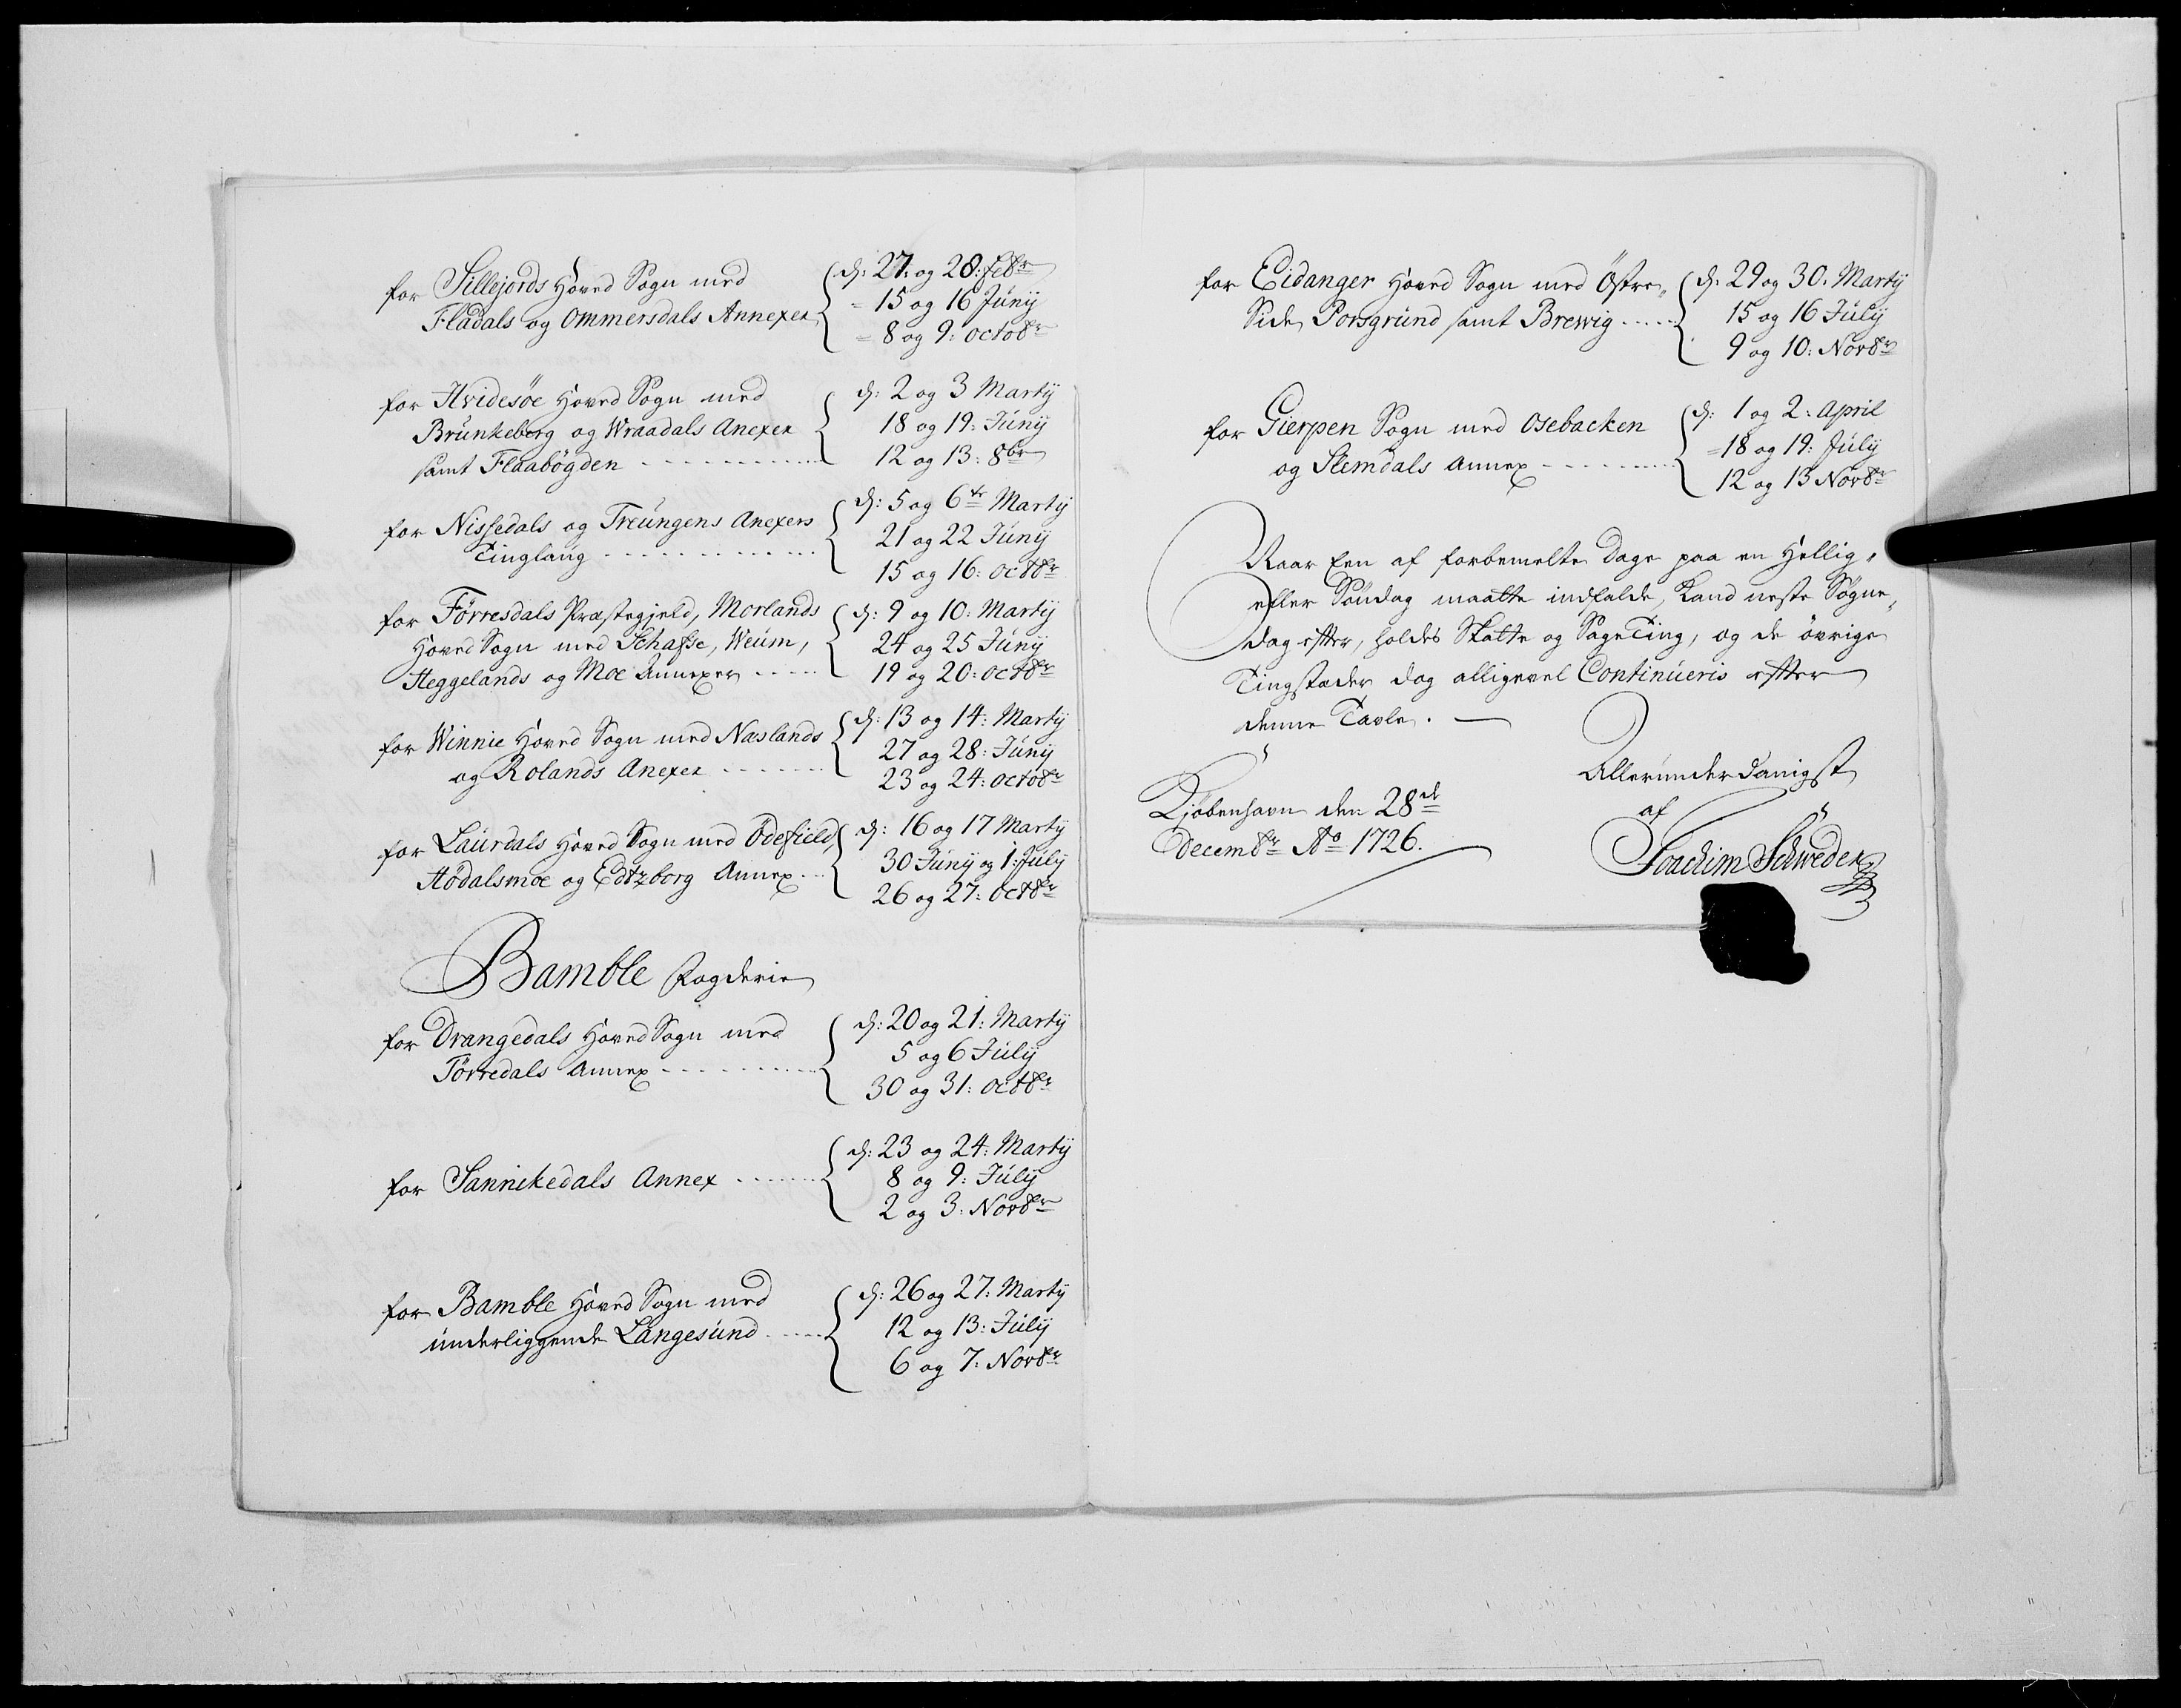 for Sillejords Hoved Sogn med
Fladals og Ommersdals Annexer
d: 27: og 28: Febr
= 15 og 16 Juny
= 8 og 9: octobr
for Hvidesøe Hoved Sogn med
Brunkeberg og Wraadals Anexer
samt Flaabögden
d: 2 og 3 Marty
18 og 19: Juny
12 og 13: 8br
for Nissedals og Treungens Anexers
Tinglaug
d: 5 og 6te Marty
21 og 22 Juny
15 og 16: Octbr
for Förresdals Præstegield, Morlands
Hoved Sogn med Schafse, Weum,
Heggelands og Moe Annexer
d: 9 og 10: Marty
24 og 25 Juny
19 og 20: Octbr
for Winnie Hoved Sogn med Næslands
og Rolands Anexer
d: 13 og 14: Marty
27 og 28: Juny
23 og 24: octobr
for Laurdals Hoved Sogn med Ödefield,
Hödalsmoe og Edtzborg Annex
d: 16 og 17 Marty
30 Juny og 1: July
26 og 27: Octbr
Bamble Fogderie
for Drangedals Hoved Sogn med
Törredals Annex
d: 20 og 21: Marty
5 og 6 July
30 og 31: Octbr
for Sannikedals Annex
d: 23 og 24: Marty
8 og 9: July
2 og 3: Novbr
for Bamble Hoved Sogn med
underliggende Langesund
d: 26 og 27: Marty
12 og 13: July
6 og 7: Novbr
for Eidanger Hoved Sogn med Östre
Side Porsgrund samt Brewig
d: 29 og 30. Marty
15 og 16 July
9 og 10: Novbr
for Gierpen Sogn med Osebacken
og Slemdals Annex
d: 1 og 2: April
= 18 og 19: July
12 og 13 Novbr
Naar Een af forbemelte Dage paa en Hellig-
eller Söndag maatte indfalde, kand neste Søgne-
dag efter, holdes Skatte og SageTing, og de övrige
Tingstæder dog alligevel Continueris efter
denne Tavle.
Kiøbenhavn den 28de
Decembr Ao 1726.
Allerunderdanigst
af
Joachim Schweder